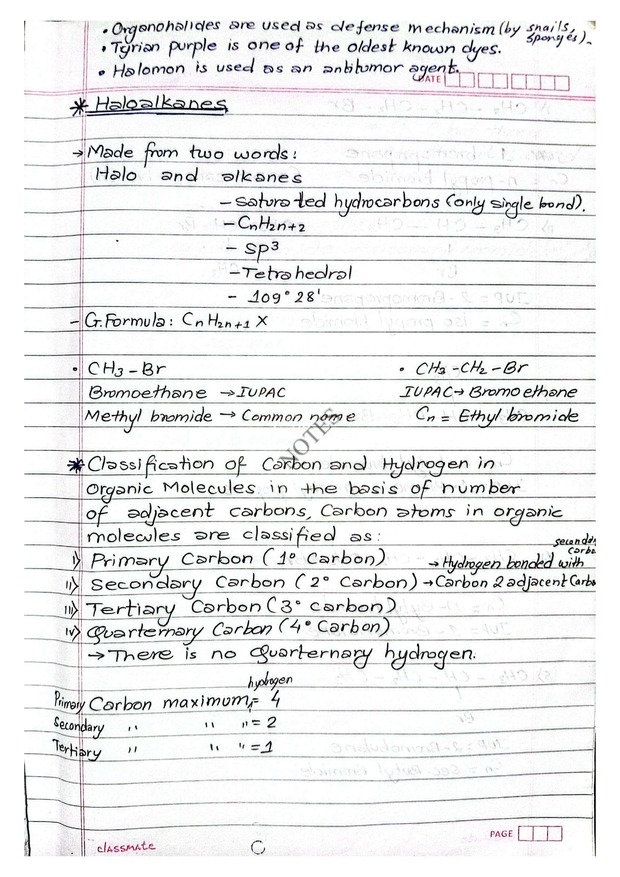 • Organohalides are used as defense mechanism (by snails, sponges).
• Tyrian purple is one of the oldest known dyes.
• Halomon is used as an antitumor agent.
DATE
* Haloalkanes
→ Made from two words:
Halo and alkanes
- saturated hydrocarbons (only single bond).
- CnH2n+2
- sp³
- Tetrahedral
- 109° 28'
- G.Formula: CnH2n+1 X
• CH3 - Br
• CH3 - CH2 - Br
Bromoethane → IUPAC
IUPAC → Bromoethane
Methyl bromide → Common name
Cn = Ethyl bromide
NOTES
* Classification of Carbon and Hydrogen in
Organic Molecules in the basis of number
of adjacent carbons, Carbon atoms in organic
molecules are classified as:
i) Primary Carbon (1° Carbon) → Hydrogen bonded with secondary carbo
ii) Secondary Carbon (2° Carbon) → Carbon 2 adjacent Carbo
iii) Tertiary Carbon (3° carbon)
iv) Quarternary Carbon (4° Carbon)
→ There is no Quarternary hydrogen.
Primary Carbon maximum hydrogen = 4
Secondary " " " = 2
Tertiary " " " = 1
PAGE
classmate